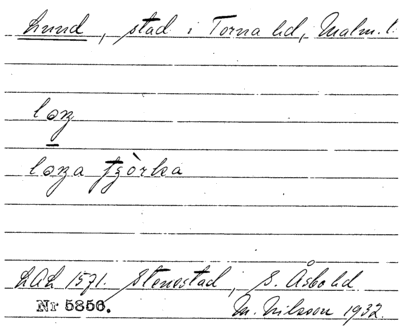 Lund, stad i Torna hd, Malm. l.
LAL 1571. Stenestad, S. Åsbo hd
Nr 5856. M. Nilsson 1932.